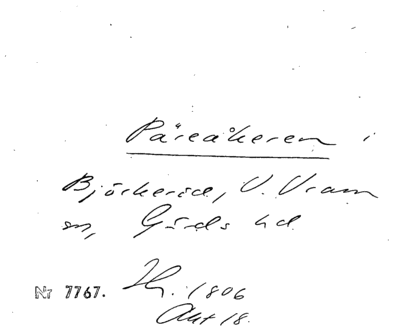 Päreåkeren i
Björkerid, V. Vram
sn, Gärds hd
Nr 7767.
Hr. 1806
Akt 18.